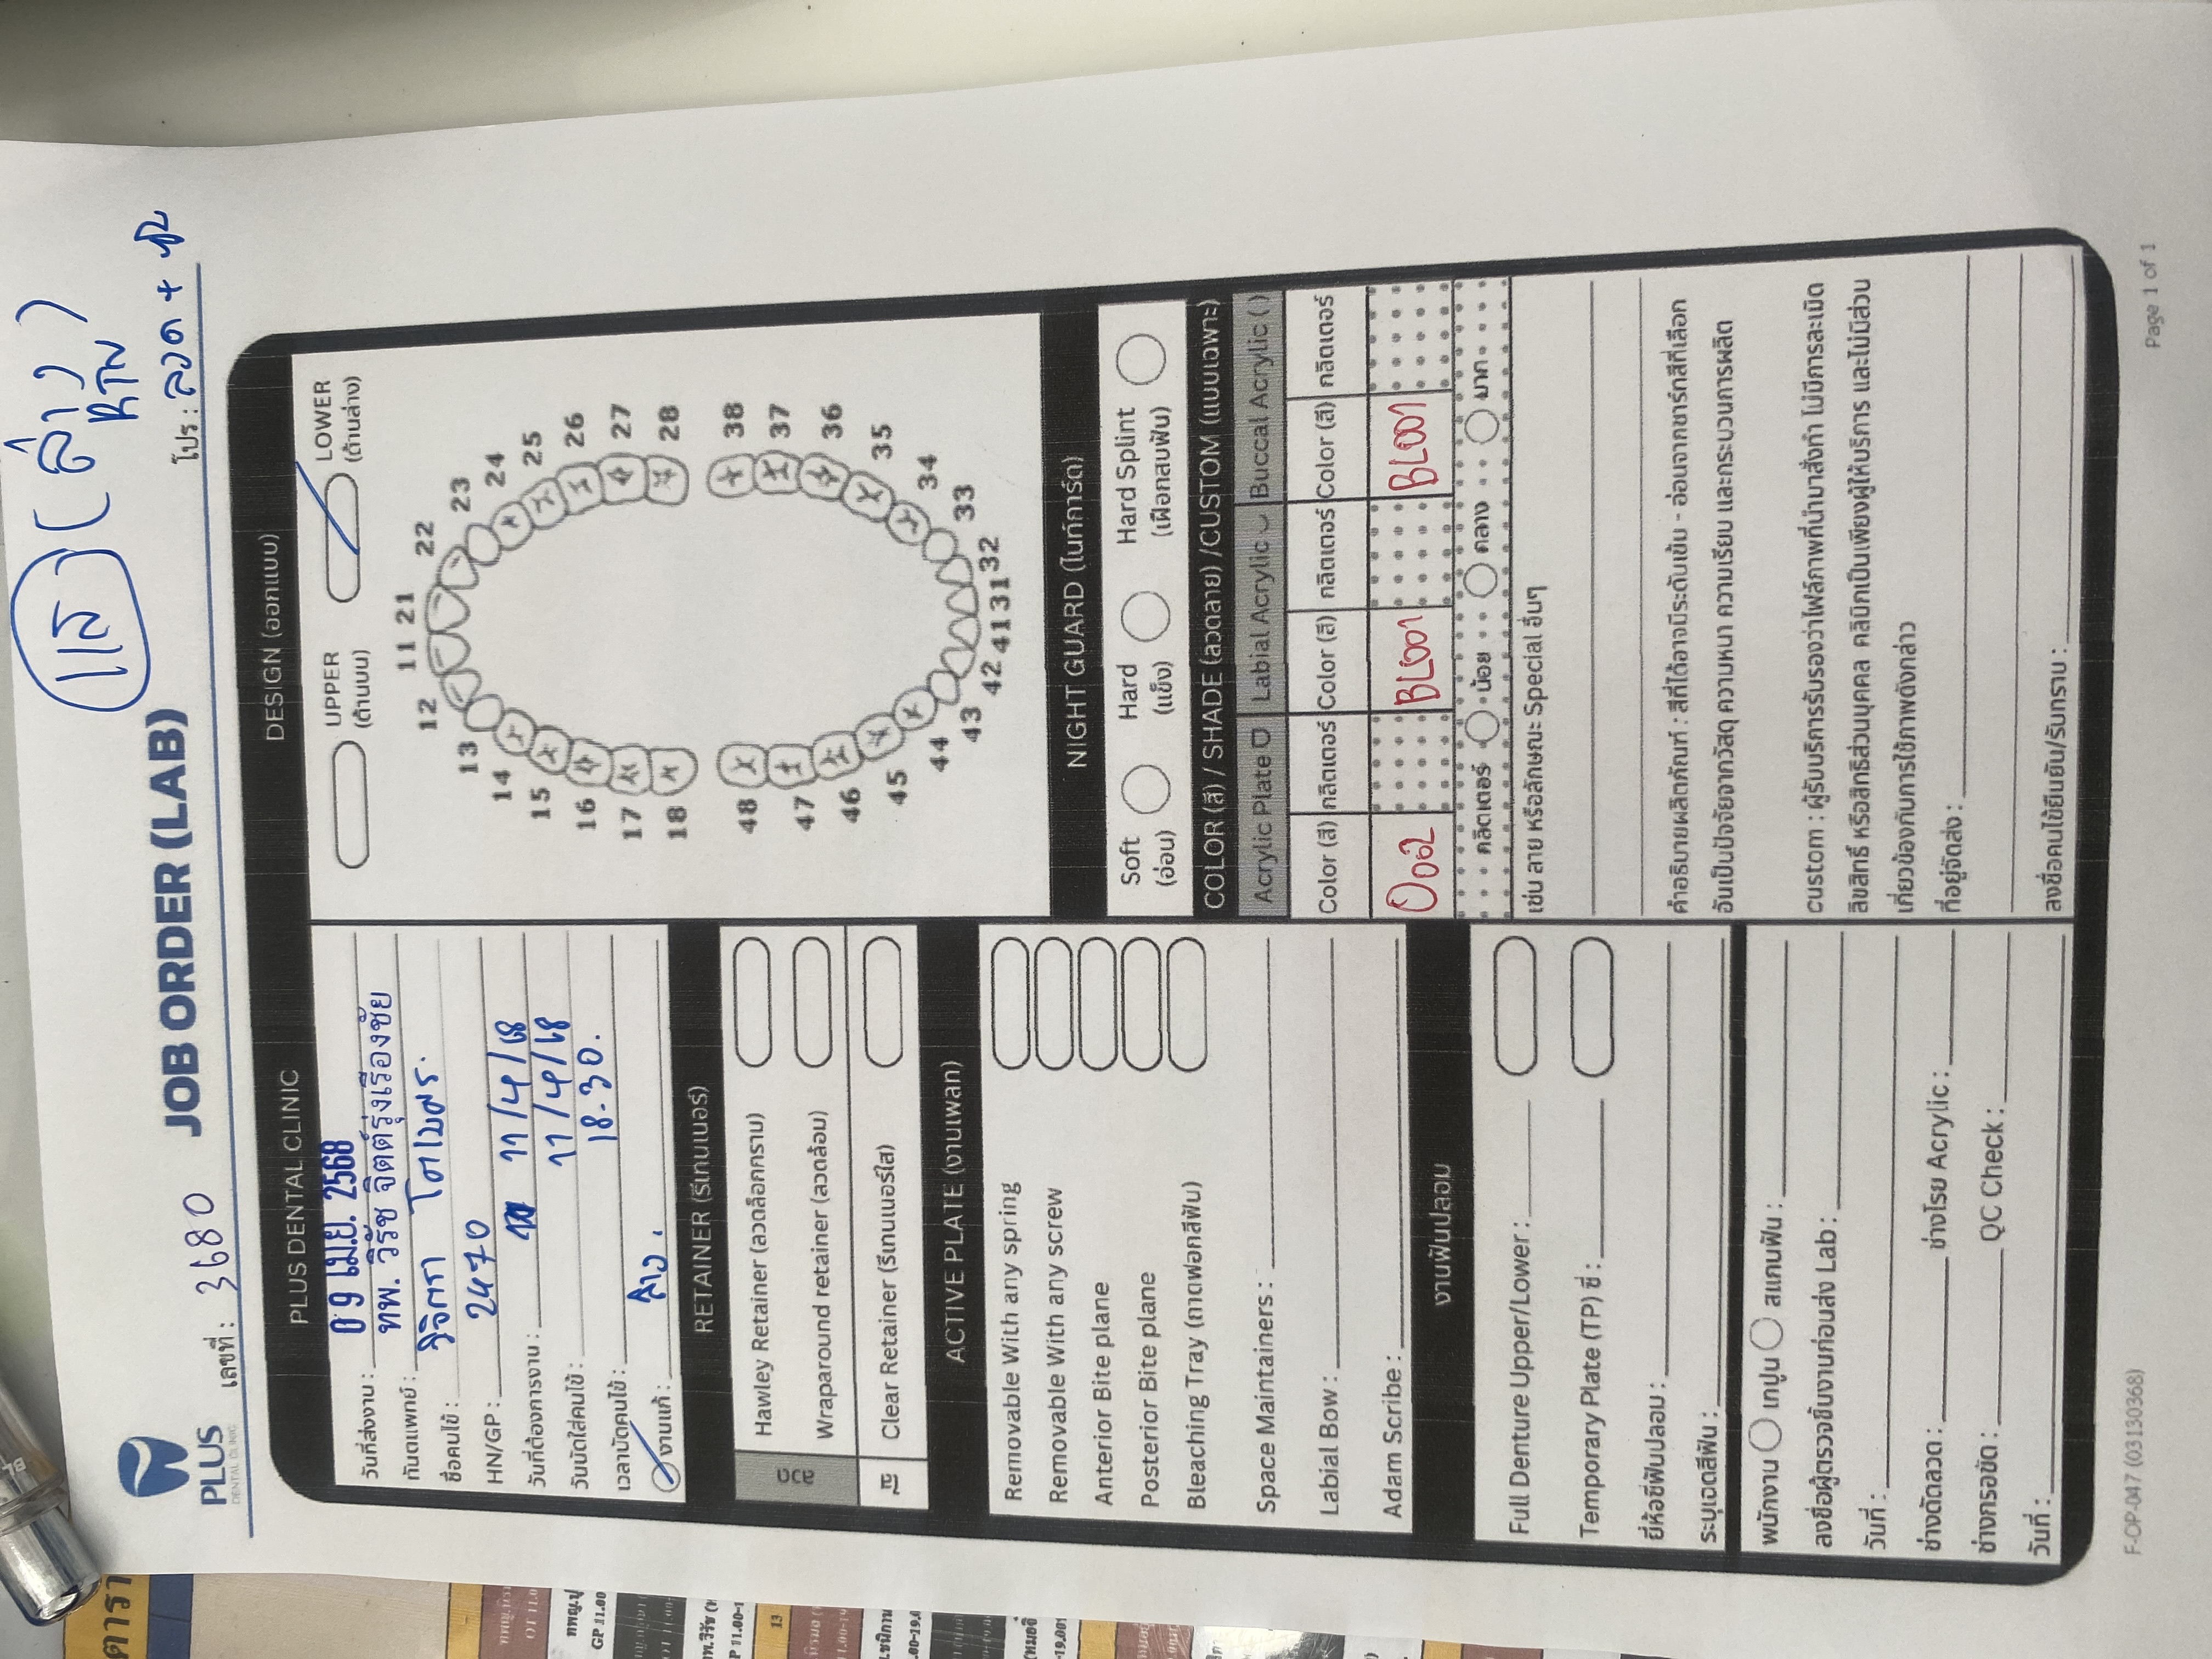 แล) (ล่าง
หาย)
PLUS
DENTAL CLINIC
เลขที่ : 3680
JOB ORDER (LAB)
โปร : ลวด +
PLUS DENTAL CLINIC
วันที่ส่งงาน : 09 เม.ย. 2568
ทันตแพทย์ : ทพ. วิรัช จิตต์รุ่งเรืองชัย
ชื่อคนไข้ :
HN/GP : 2470
วันที่ต้องการงาน : 11/4/68
วันนัดใส่คนไข้ : 11/4/68
เวลานัดคนไข้ : 18.30.
งานแก้ : ล่าง.
RETAINER (รีเทนเนอร์)
ลวด
Hawley Retainer (ลวดล็อกกราม)
Wraparound retainer (ลวดล้อม)
ใส
Clear Retainer (รีเทนเนอร์ใส)
ACTIVE PLATE (งานเพลท)
Removable With any spring
Removable With any screw
Anterior Bite plane
Posterior Bite plane
Bleaching Tray (ถาดฟอกสีฟัน)
Space Maintainers :
Labial Bow :
Adam Scribe :
งานฟันปลอม
Full Denture Upper/Lower :
Temporary Plate (TP) ซี่ :
ยี่ห้อซี่ฟันปลอม :
ระบุเฉดสีฟัน :
พนักงาน เทปูน สแกนฟัน :
ลงชื่อผู้ตรวจชิ้นงานก่อนส่ง Lab :
วันที่ :
ช่างดัดลวด : ช่างโรย Acrylic :
ช่างกรอขัด : QC Check :
วันที่ :
DESIGN (ออกแบบ)
UPPER
(ด้านบน)
LOWER
(ด้านล่าง)
11 21
12 22
13 23
14 24
15 25
16 26
17 27
18 28
48 38
47 37
46 36
45 35
44 34
43 33
42 41 31 32
NIGHT GUARD (ไนท์การ์ด)
Soft
(อ่อน)
Hard
(แข็ง)
Hard Splint
(เฝือกสบฟัน)
COLOR (สี) / SHADE (ลวดลาย) /CUSTOM (แบบเฉพาะ)
Acrylic Plate Labial Acrylic Buccal Acrylic ( )
Color (สี) กลิตเตอร์ Color (สี) กลิตเตอร์ Color (สี) กลิตเตอร์
O002 BL001 BL001
กลิตเตอร์ น้อย กลาง มาก
เช่น ลาย หรือลักษณะ Special อื่นๆ
คำอธิบายผลิตภัณฑ์ : สีที่ได้อาจมีระดับเข้ม - อ่อนจากชาร์ทสีที่เลือก
อันเป็นปัจจัยจากวัสดุ ความหนา ความเรียบ และกระบวนการผลิต
custom : ผู้รับบริการรับรองว่าไฟล์ภาพที่นำมาสั่งทำ ไม่มีการละเมิด
ลิขสิทธิ์ หรือสิทธิส่วนบุคคล คลินิกเป็นเพียงผู้ให้บริการ และไม่มีส่วน
เกี่ยวข้องกับการใช้ภาพดังกล่าว
ที่อยู่จัดส่ง :
ลงชื่อคนไข้ยืนยัน/รับทราบ :
F-OP-047 (03130368)
Page 1 of 1